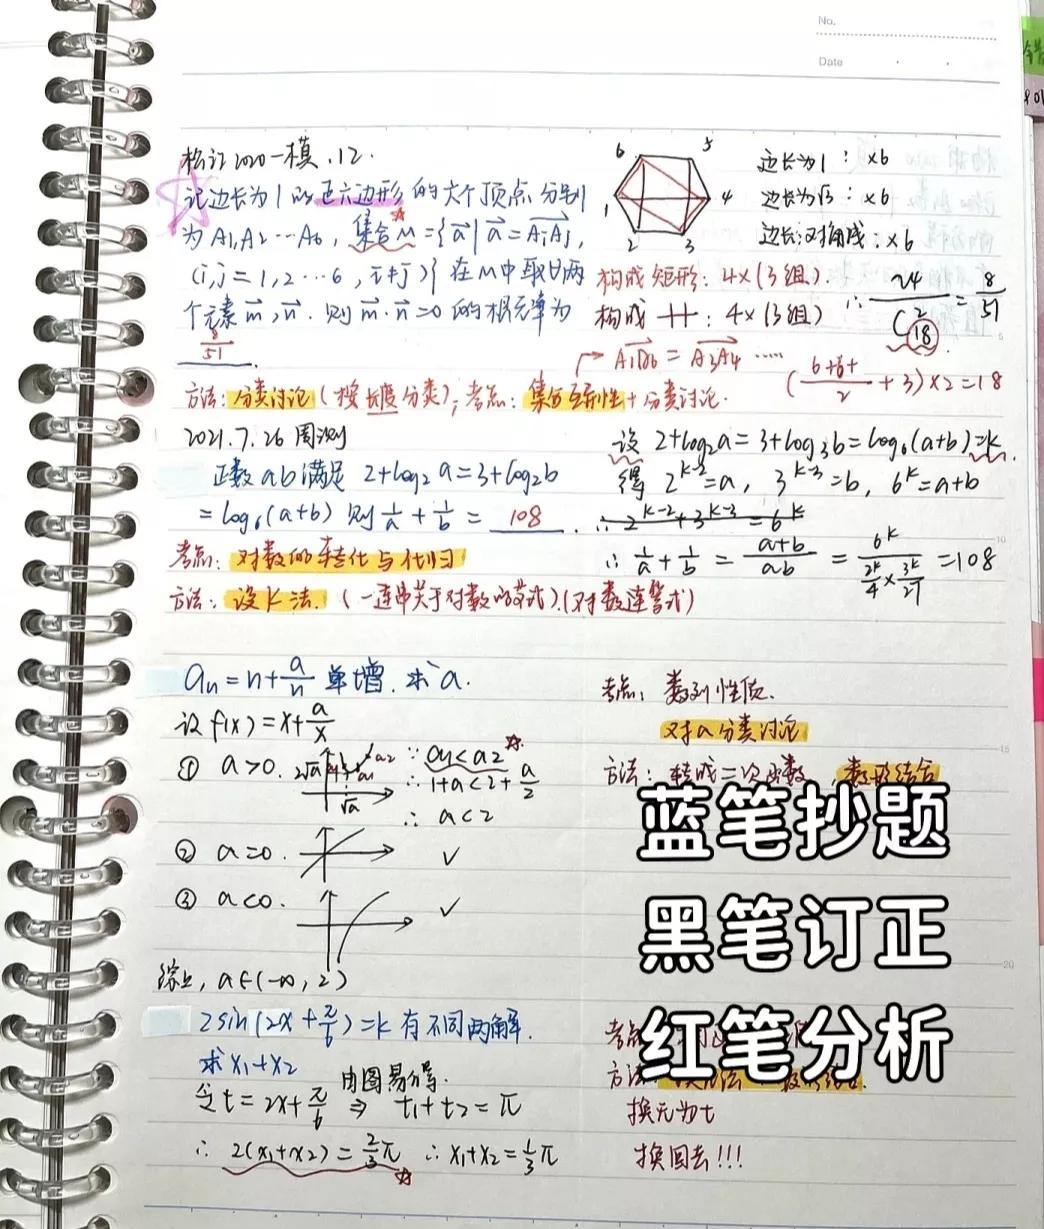 No.
Date
松江2020一模.12.
记边长为1的正六边形的六个顶点分别
为A1,A2…A6,集合M={a|a=AiAj,
(i,j=1,2…6,i≠j)}在M中取出两
个元素m,n.则m·n=0的概率为
8/51
6 5
1 4
2 3
边长为1:×6
边长为√3:×6
边长:对角线:×6
构成矩形:4×(3组)
构成 :4×(3组)
∴24/C²18=8/51
= A3A4 ……
+3)×2=18
方法:分类讨论(按长度分类);考点:集合互异性+分类讨论.
2021.7.26周测
正数ab满足 2+log2a=3+log2b
=log6(a+b) 则1/a+1/b=108.
考点:对数的转化与代归
方法:设k法.(一连串关于对数的等式).(对数连等式)
设 2+log2a=3+log3b=log6(a+b)=k.
得 2^(k-2)=a, 3^(k-3)=b, 6^k=a+b
∴2^(k-2)+3^(k-3)=6^k
∴1/a+1/b=(a+b)/ab=6^k/(2^k/4×3^k/27)=108
an=n+a/n 单增.求a.
设f(x)=x+a/x
① a>0. 2√a a1 a2 √a
∵a1<a2
∴1+a<2+a/2
∴ a<2
② a=0. ✓
③ a<0. ✓
综上,a∈(-∞,2)
考点:数列性质.
对a分类讨论
方法:转成二次函数,数形结合
蓝笔抄题
黑笔订正
红笔分析
2sin(2x+π/6)=k有不同两解.
求x1+x2
令t=2x+π/6 由图易得. ⇒ t1+t2=π
∴2(x1+x2)=2/3π ∴x1+x2=1/3π
考点
方法:
换元为t
换回去!!!